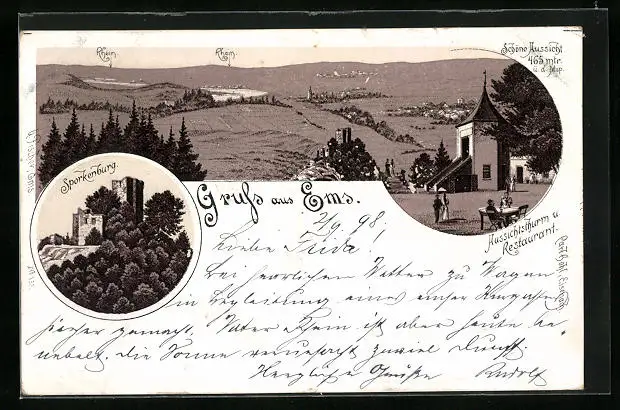 Rhein.
Rhein.
Schöne Aussicht
465 mtr.
ü. d. M.
Sporkenburg.
Gruß aus Ems.
Aussichtsthurm u.
Restaurant.
2/9 98.
Liebe Frida!
bei herrlichem Wetter zu Wagen
in Begleitung eines
hierher gemacht. Vater Rhein ist aber heute be-
nebelt. die Sonne verursacht zuviel Dunst.
Herzliche Grüße Rudolf